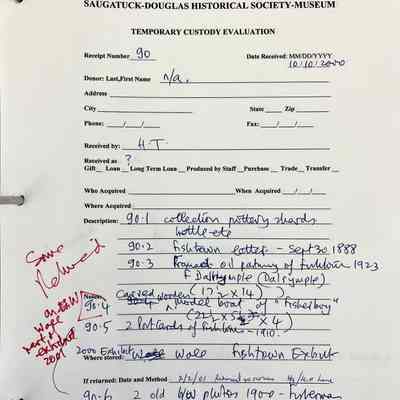 SAUGATUCK-DOUGLAS HISTORICAL SOCIETY-MUSEUM
TEMPORARY CUSTODY EVALUATION
Receipt Number 90 Date Received: MM/DD/YYYY
10/10/2000
Donor: Last,First Name n/a.
Address
City State Zip
Phone: / / Fax: / /
Received by: H T.
Received as ?
Gift Loan Long Term Loan Produced by Staff Purchase Trade Transfer
Who Acquired When Acquired / /
Where Acquired
Description: 90.1 collection pottery shards
bottle etc
90.2 fishtown letter - Sept 30 1888
90.3 Framed oil painting of fishtown 1923
F Dalrymple (Dalsymple)
(17½ x 14)
Notes: Carved wooden
90.4 model boat of "Fisherboy"
(22½ x 4)
90.5 2 Postcards of fishtown - 1910.
2000 Exhibit
Where stored: Wale fishtown Exhibit
If returned: Date and Method
90.6 2 old b/w photos 1900 - fisherman
Some
on
Wale
exhibit
2001